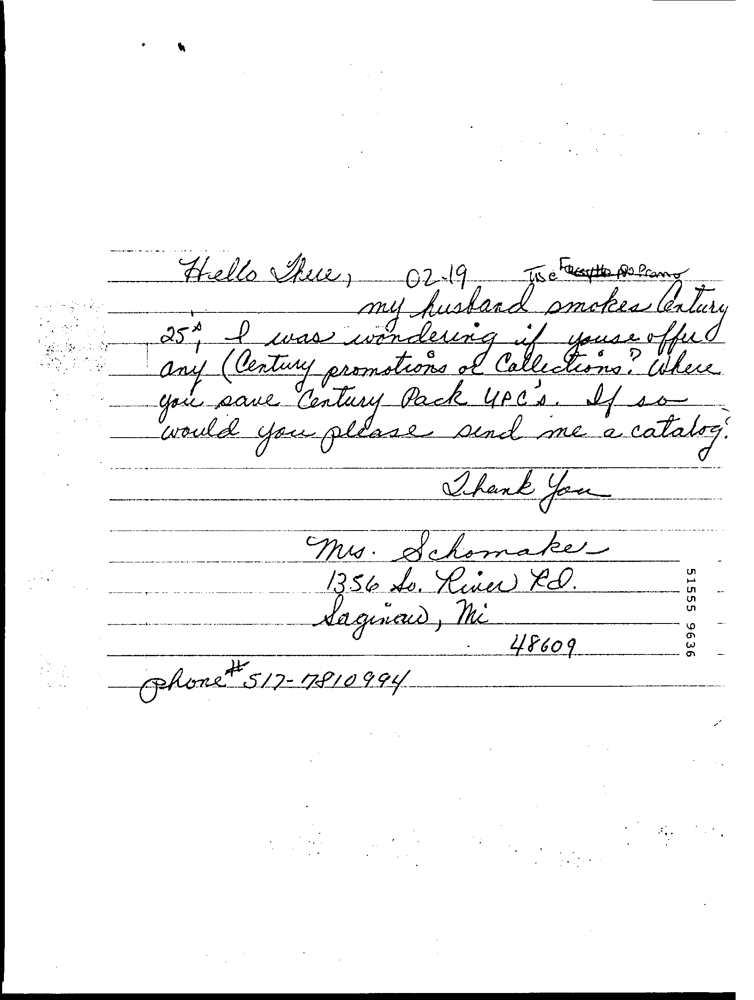 Hello There, 02-19
my husband smokes Century
25's, I was wondering if youse offer
any (Century promotions or Collections? Where
you save Century Pack UPC's. If so
would you please send me a catalog?
Thank You
Mrs. Schomaker
1356 So. River Rd.
Saginaw, Mi
48609
phone# 517-7810994
51555 9636